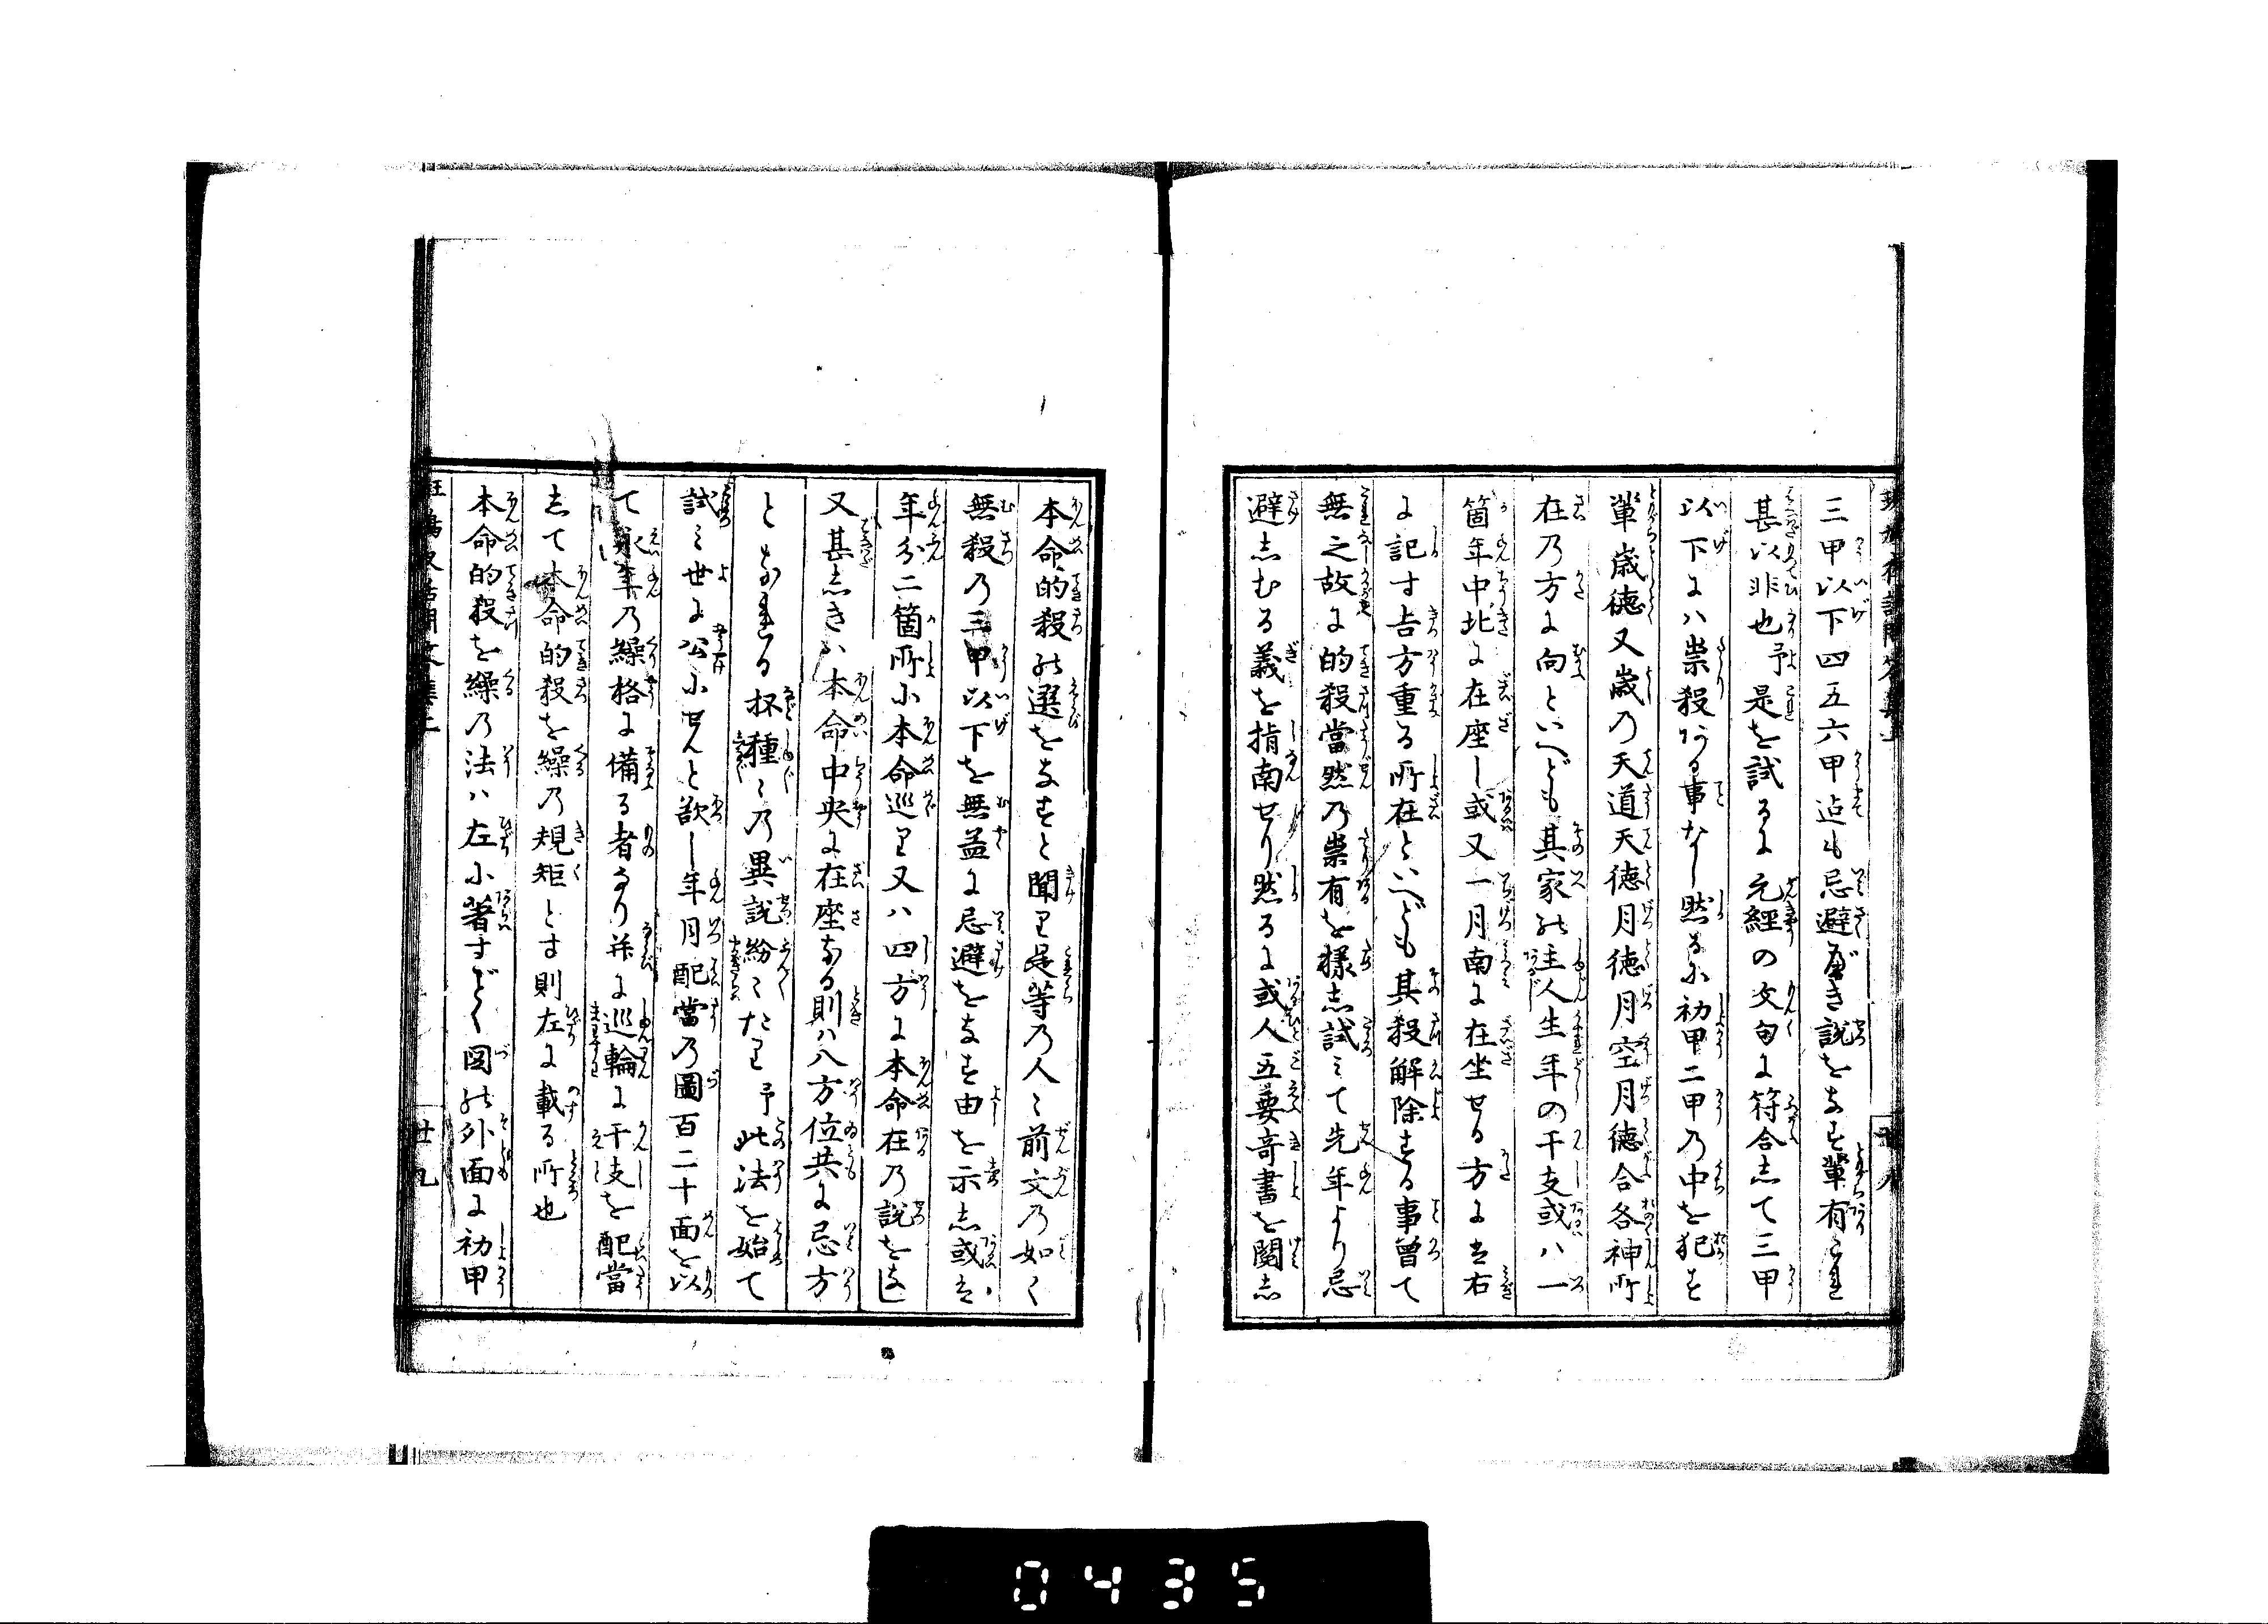 三甲以下四五六甲迠も忌避べき説をなす輩有これ
甚以非也予是を試るに元經の文句に符合して三甲
以下にハ祟殺ある事なし然るに初甲二甲の中を犯す
輩歳徳又歳の天道天徳月徳月空月徳合各神所
在の方に向といへども其家の主人生年の干支或ハ一
箇年中北に在座し或又一月南に在坐せる方には右
に記す吉方重る所在といへども其殺解除する事曽て
無之故に的殺當然の祟有を様し試ミて先年より忌
避しむる義を指南せり然るに或人五要奇書を閲し
本命的殺の選をなすと聞り是等の人々前文の如く
無殺の三甲以下を無益に忌避をなす由を示し或は
年分二箇所に本命巡り又ハ四方に本命在の説をなし
又甚しきハ本命中央に在座なる則ハ八方位共に忌方
となれる抔種々の異説紛々たり予此法を始て
試ミ世に公にせんと欲し年月配當の圖百二十面を以
て永年の繰格に備る者なり并に巡輪に干支を配當
して本命的殺を繰の規矩とす則左に載る所也
本命的殺を繰の法ハ左に著すごく図の外面に初甲
廿九
0435